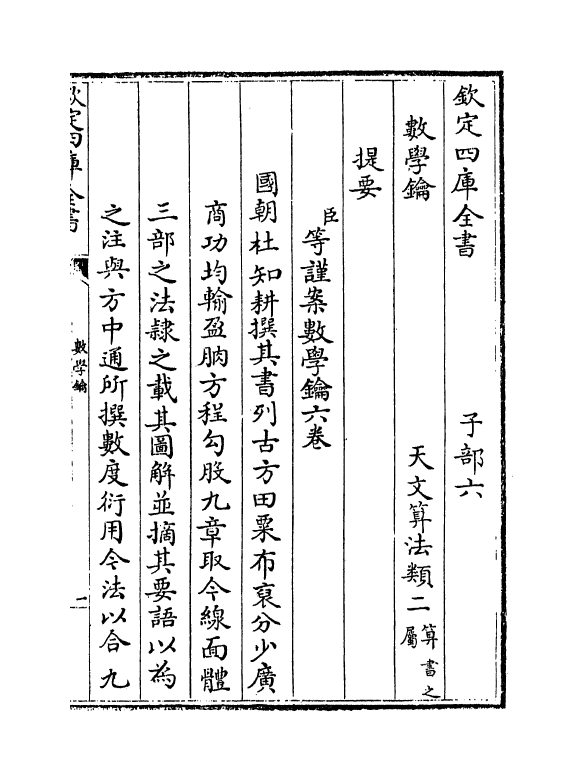 欽定四庫全書　子部六
數學鑰　天文算法類二算書之屬
提要
臣等謹案數學鑰六卷
國朝杜知耕撰其書列古方田粟布衰分少廣
商功均輸盈朒方程勾股九章取今線面體
三部之法隸之載其圖解並摘其要語以為
之注與方中通所撰數度衍用今法以合九
欽定四庫全書
數學鑰
一